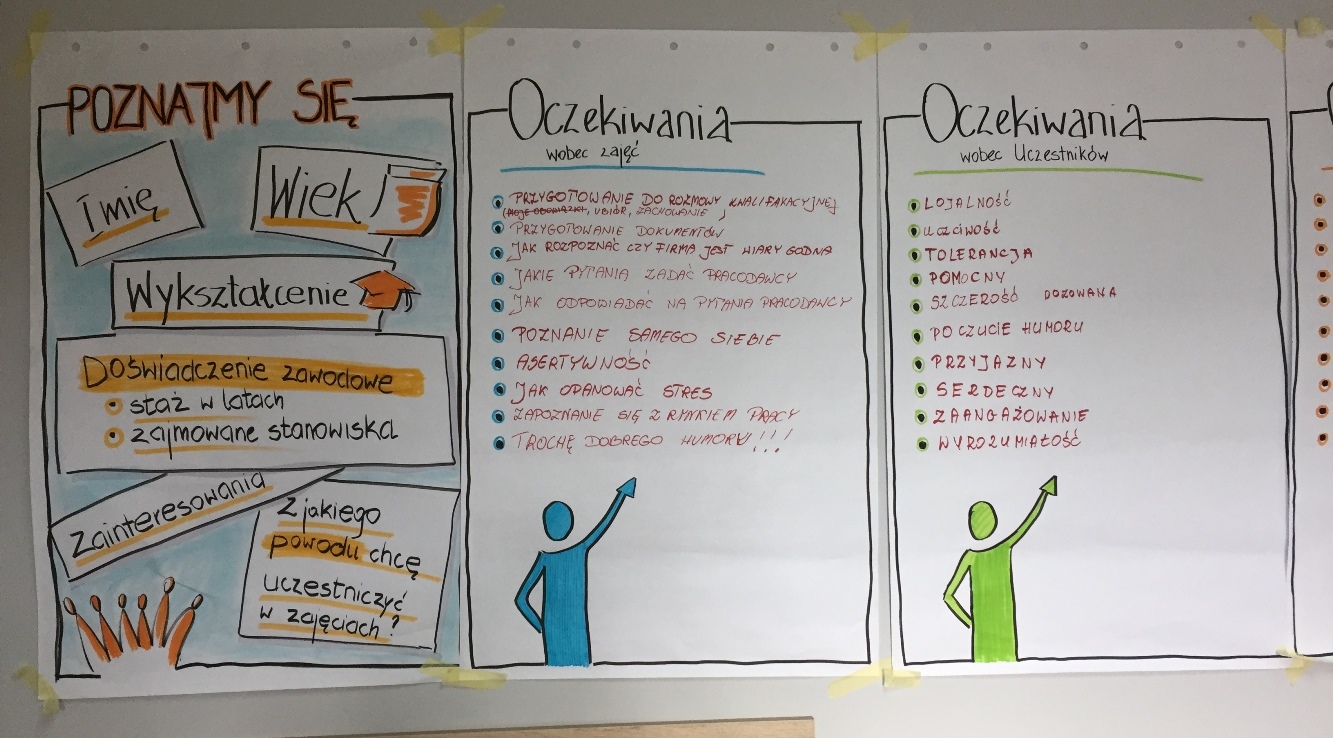 POZNAJMY SIĘ
Imię
Wiek
Wykształcenie
Doświadczenie zawodowe
staż w latach
zajmowane stanowiska
Zainteresowania
Z jakiego
powodu chcę
uczestniczyć
w zajęciach?
Oczekiwania
wobec zajęć
PRZYGOTOWANIE DO ROZMOWY KWALIFAKACYJNEJ
(MOJE OBOWIĄZKI, UBIÓR, ZACHOWANIE)
PRZYGOTOWANIE DOKUMENTÓW
JAK ROZPOZNAĆ CZY FIRMA JEST WIARY GODNA
JAKIE PYTANIA ZADAĆ PRACODAWCY
JAK ODPOWIADAĆ NA PYTANIA PRACODAWCY
POZNANIE SAMEGO SIEBIE
ASERTYWNOŚĆ
JAK OPANOWAĆ STRES
ZAPOZNANIE SIĘ Z RYNKIEM PRACY
TROCHĘ DOBREGO HUMORU!!!
Oczekiwania
wobec Uczestników
LOJALNOŚĆ
uczciwość
TOLERANCJA
POMOCNY
SZCZEROŚĆ DOZOWANA
POCZUCIE HUMORU
PRZYJAZNY
SERDECZNY
ZAANGAŻOWANIE
WYROZUMIAŁOŚĆ